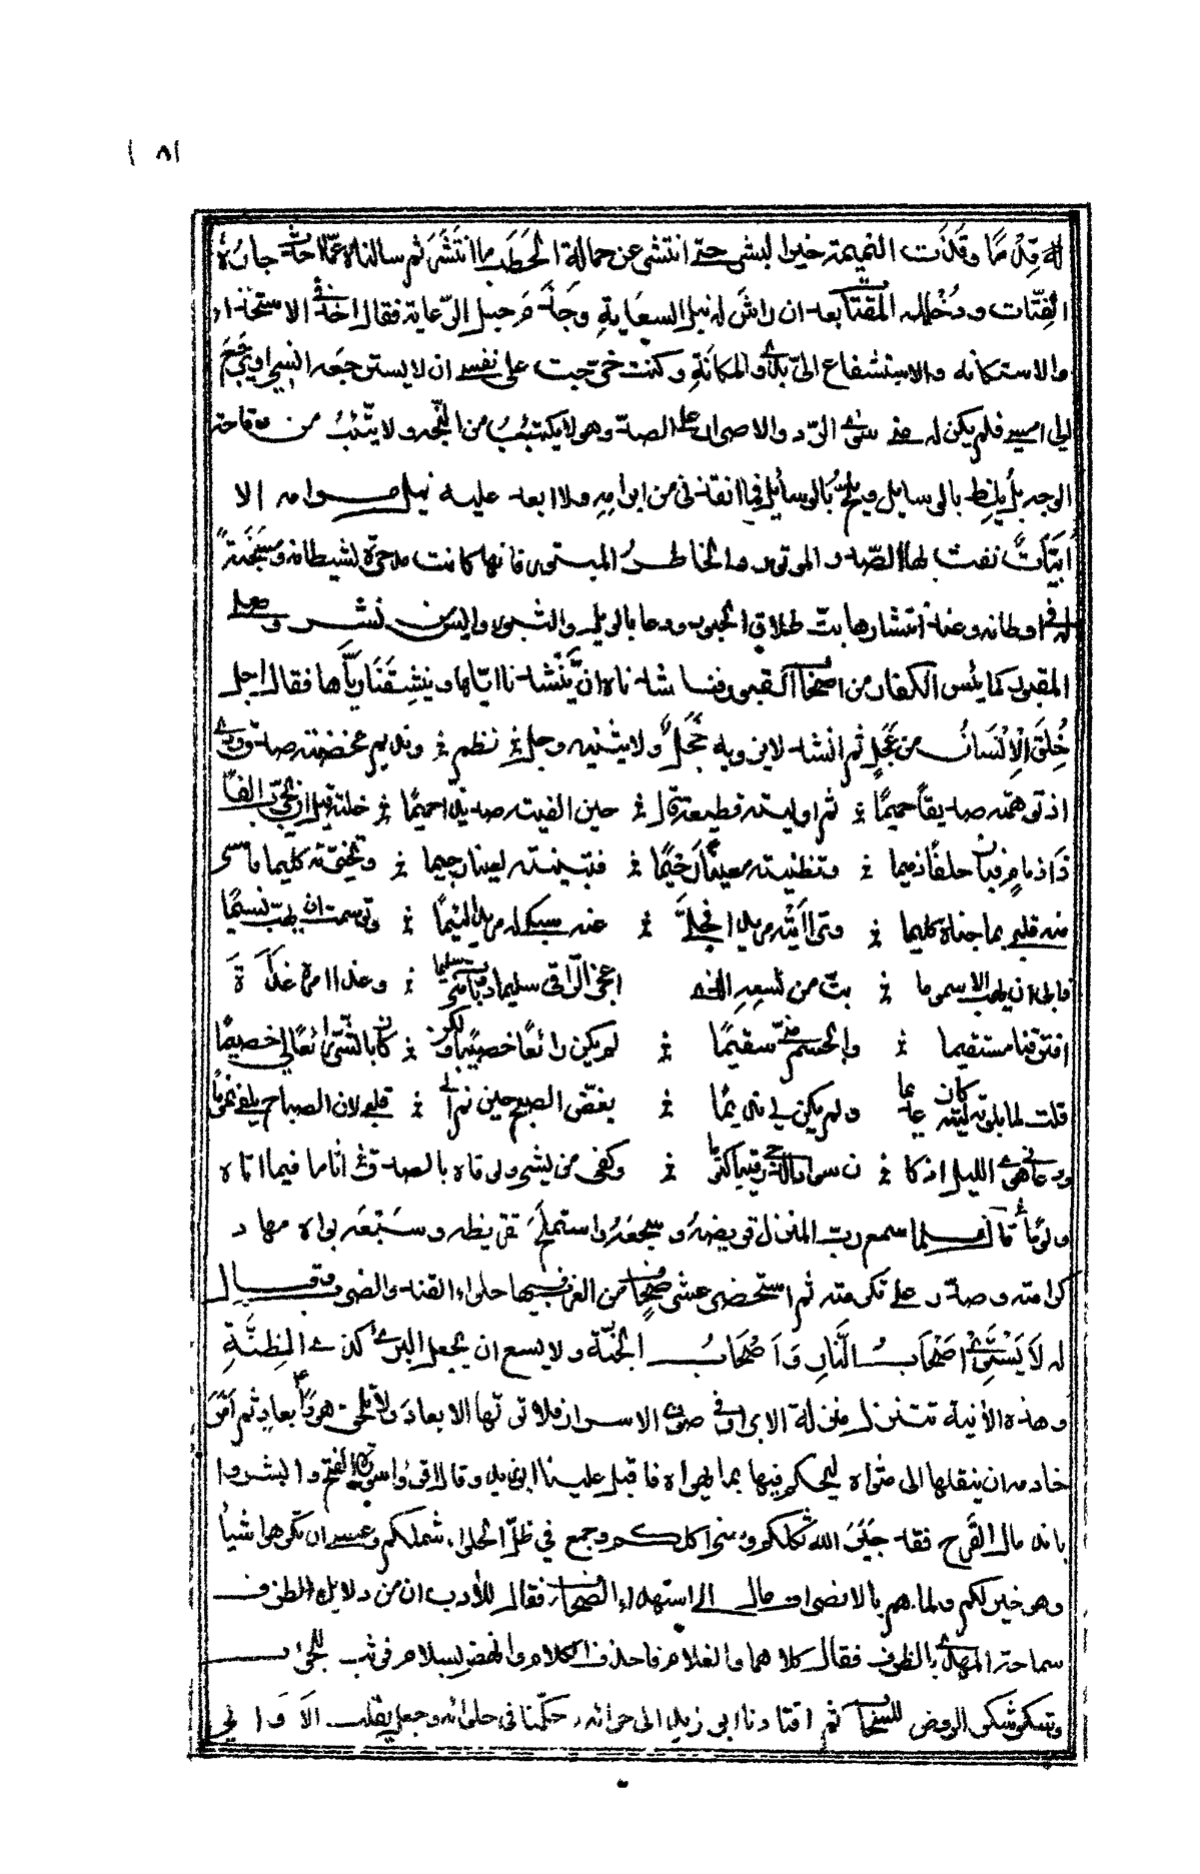 ١ ٨١
له قِدْمًا وقَذَت النميمة خير البشر حتى انتشر عن حمالة الحَطَب ما انتَشَرَ ثم سالناه عمّا احدث جاره
القتّات ودُخْلُله المفتات بعد ان راشَ له نبل السعايةِ وجَذَم حبل الرّعاية فقال اخذ في الاستخذاء
والاستكانه والاستشفاع اليّ بذوي المكانةِ وكنت حرّجت على نفسي ان لا يسترجعه انسي او يرجع
الي امسي فلم يكن له مني سوى الردّ والاصرار على الصدّ وهو لا يكتئبُ من النّجه ولا يتّئبُ من وقاحة
الوجه بل يُلِظ بالوسايل ويلحّ بالوسائل فما انقذني من ابرامِهِ ولا ابعد عليه نيل مرامه الا
ابْيَاتٌ نفث بها الصّدر الموتور والخاطرُ المبتور فانها كانت مدحرة لشيطانه ومسجنَةً
له في اوطانه وعند انتشارها بتّ طلاق الحبور ودعا بالويل والثبور وايس من نشر وصلي
المقبور كما يئس الكفار من اصحاب القبور فناشدناه ان يُنْشدنا ايّاها وينشِقَنا ريّاها فقال اجل
خُلِقَ الإِنْسَانُ من عَجَلٍ ثم انشد لا يزويه خَجَلٌ ولا يثنيه وجل نظم ونديم محضته صدق ودي
اذ توهمته صديقاً حميمًا ثم اوليته قطيعة قال حين الفيته صديدا حميمًا خلته قبل ان يجرب الفا
ذا ذمام فبان جلفًا ذميما وتظنيته معينًا رَحِيمًا فتبينته لعينا رجيما وتخيّرته كليما فامسى
منه قلبي بما جناه كليما وترااَيْته مريدا فجلّى عنه سبكي له مريدا لئيمًا وتوسمت ان يهب نسيمًا
فابى ان يهب الا سموما بتّ من لسعِهِ الذي اعجز الراقي سليما وبات مني سليما وغدا امره غداة
افترقنا مستقيما والجسم مني سقيمًا لم يكن رائعًا خصيبًا ولكن كان بالشرّ رائعًا لي خصيمًا
قلت لما بلوته ليته كان عديما ولم يكن لي نديمًا بغّض الصبح حين نم الى قلبي لان الصباح يلفى نمومًا
ودعاني هوى الليل اذ كان سواد الدجى رقيبا كتوما وكفى من يشي ولو فاه بالصدق اثاما فيما اتاه
ولومًا قال فلما سمع رب المنزل قريضهُ وسجعَهُ واستملحَ تقريظه وسَبَعَه بواه مهاد
كرامته وصدره على تكرمته ثم استحضر عشر صِحَافٍ من الغرب فيها حلواء القند والضرب وقال
له لا يَسْتَوِي اَصْحَابُ النَّارِ وَاَصْحَابُ الجنّة ولا يسع ان يجعل البريُ كذي الظِنَّةِ
وهذه الآنية تتنزل منزلة الابرار في صون الاسرار فلا تولها الابعادَ ولا تلحق هودًا بعاد ثم اَمَرَ
خادمه ان ينقلها الى مثواه ليحكم فيها بما يهواه فاقبل علينا ابو زيد وقال اقرؤا سورة الفتح وابشروا
باندمال القَرح فقد جَبَرَ الله ثكلكم وسنى اكلكم وجمع في ظلّ الحلواء شملكم وعسى ان تكرهوا شيأ
وهو خير لكم ولما هم بالانصراف مال الى استهداء الصحاف فقال للآدب ان من دلايل الظرف
سماحة المهدي بالظرف فقال كلاهما والغلام فاحذف الكلام وانهض بسلام فوثب للجواب
وشكره شكر الروض للسحاب ثم اقتادنا ابو زيد الى حوائه وحكّمنا في حلوائه وجعل يقلب الاَوَاني